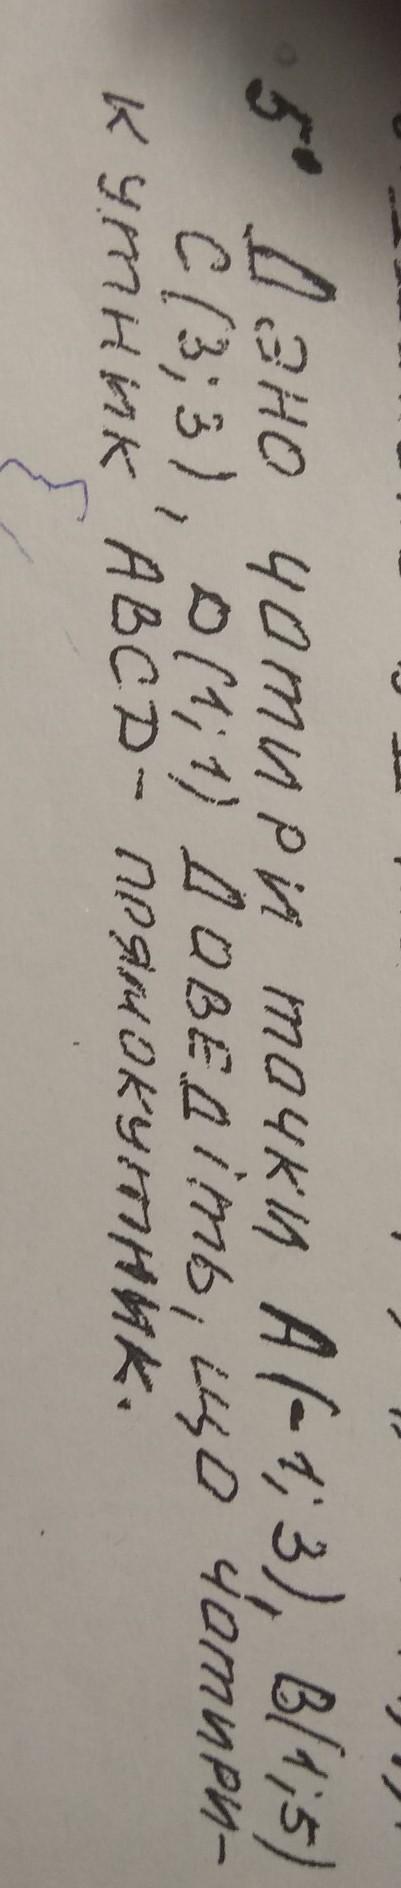 5° Дано чотири точки А(-1; 3), В(1; 5)
С(3; 3), D(1; 1) Доведіть, що чотири-
кутник ABCD - прямокутник.